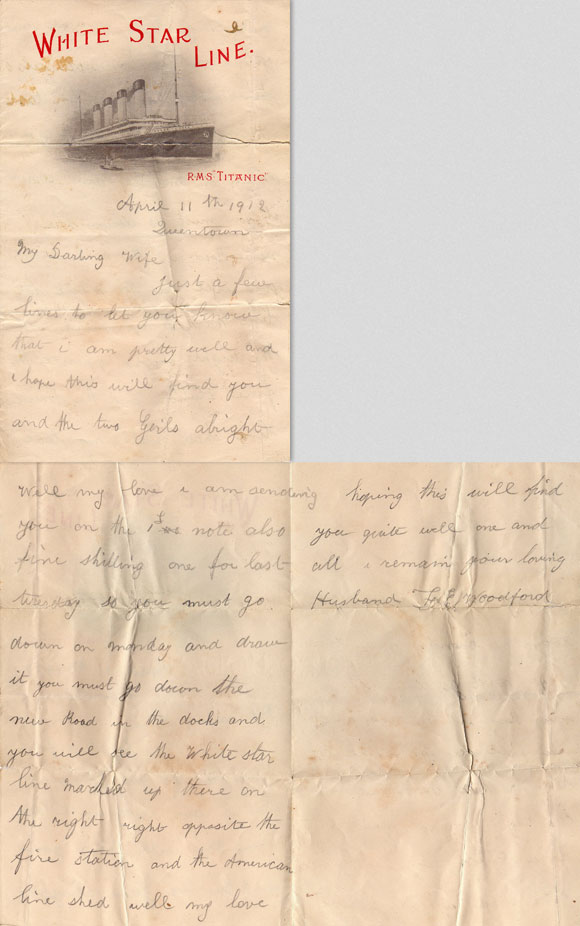 WHITE STAR
LINE.
RMS "TITANIC"
April 11th 1912
Queentown
My Darling Wife
Just a few
lines to let you know
that i am pretty well and
i hope this will find you
and the two Geils alright
Well my love i am sending
you on the note also
five shilling one for last
so you must go
down on monday and draw
it you must go down the
new Road in the docks and
you will see the White star
line Marched up there on
the right right opposite the
fire station and the American
line shed well my love
hoping this will find
you quite well one and
all i remain your loving
Husband F E Woodford